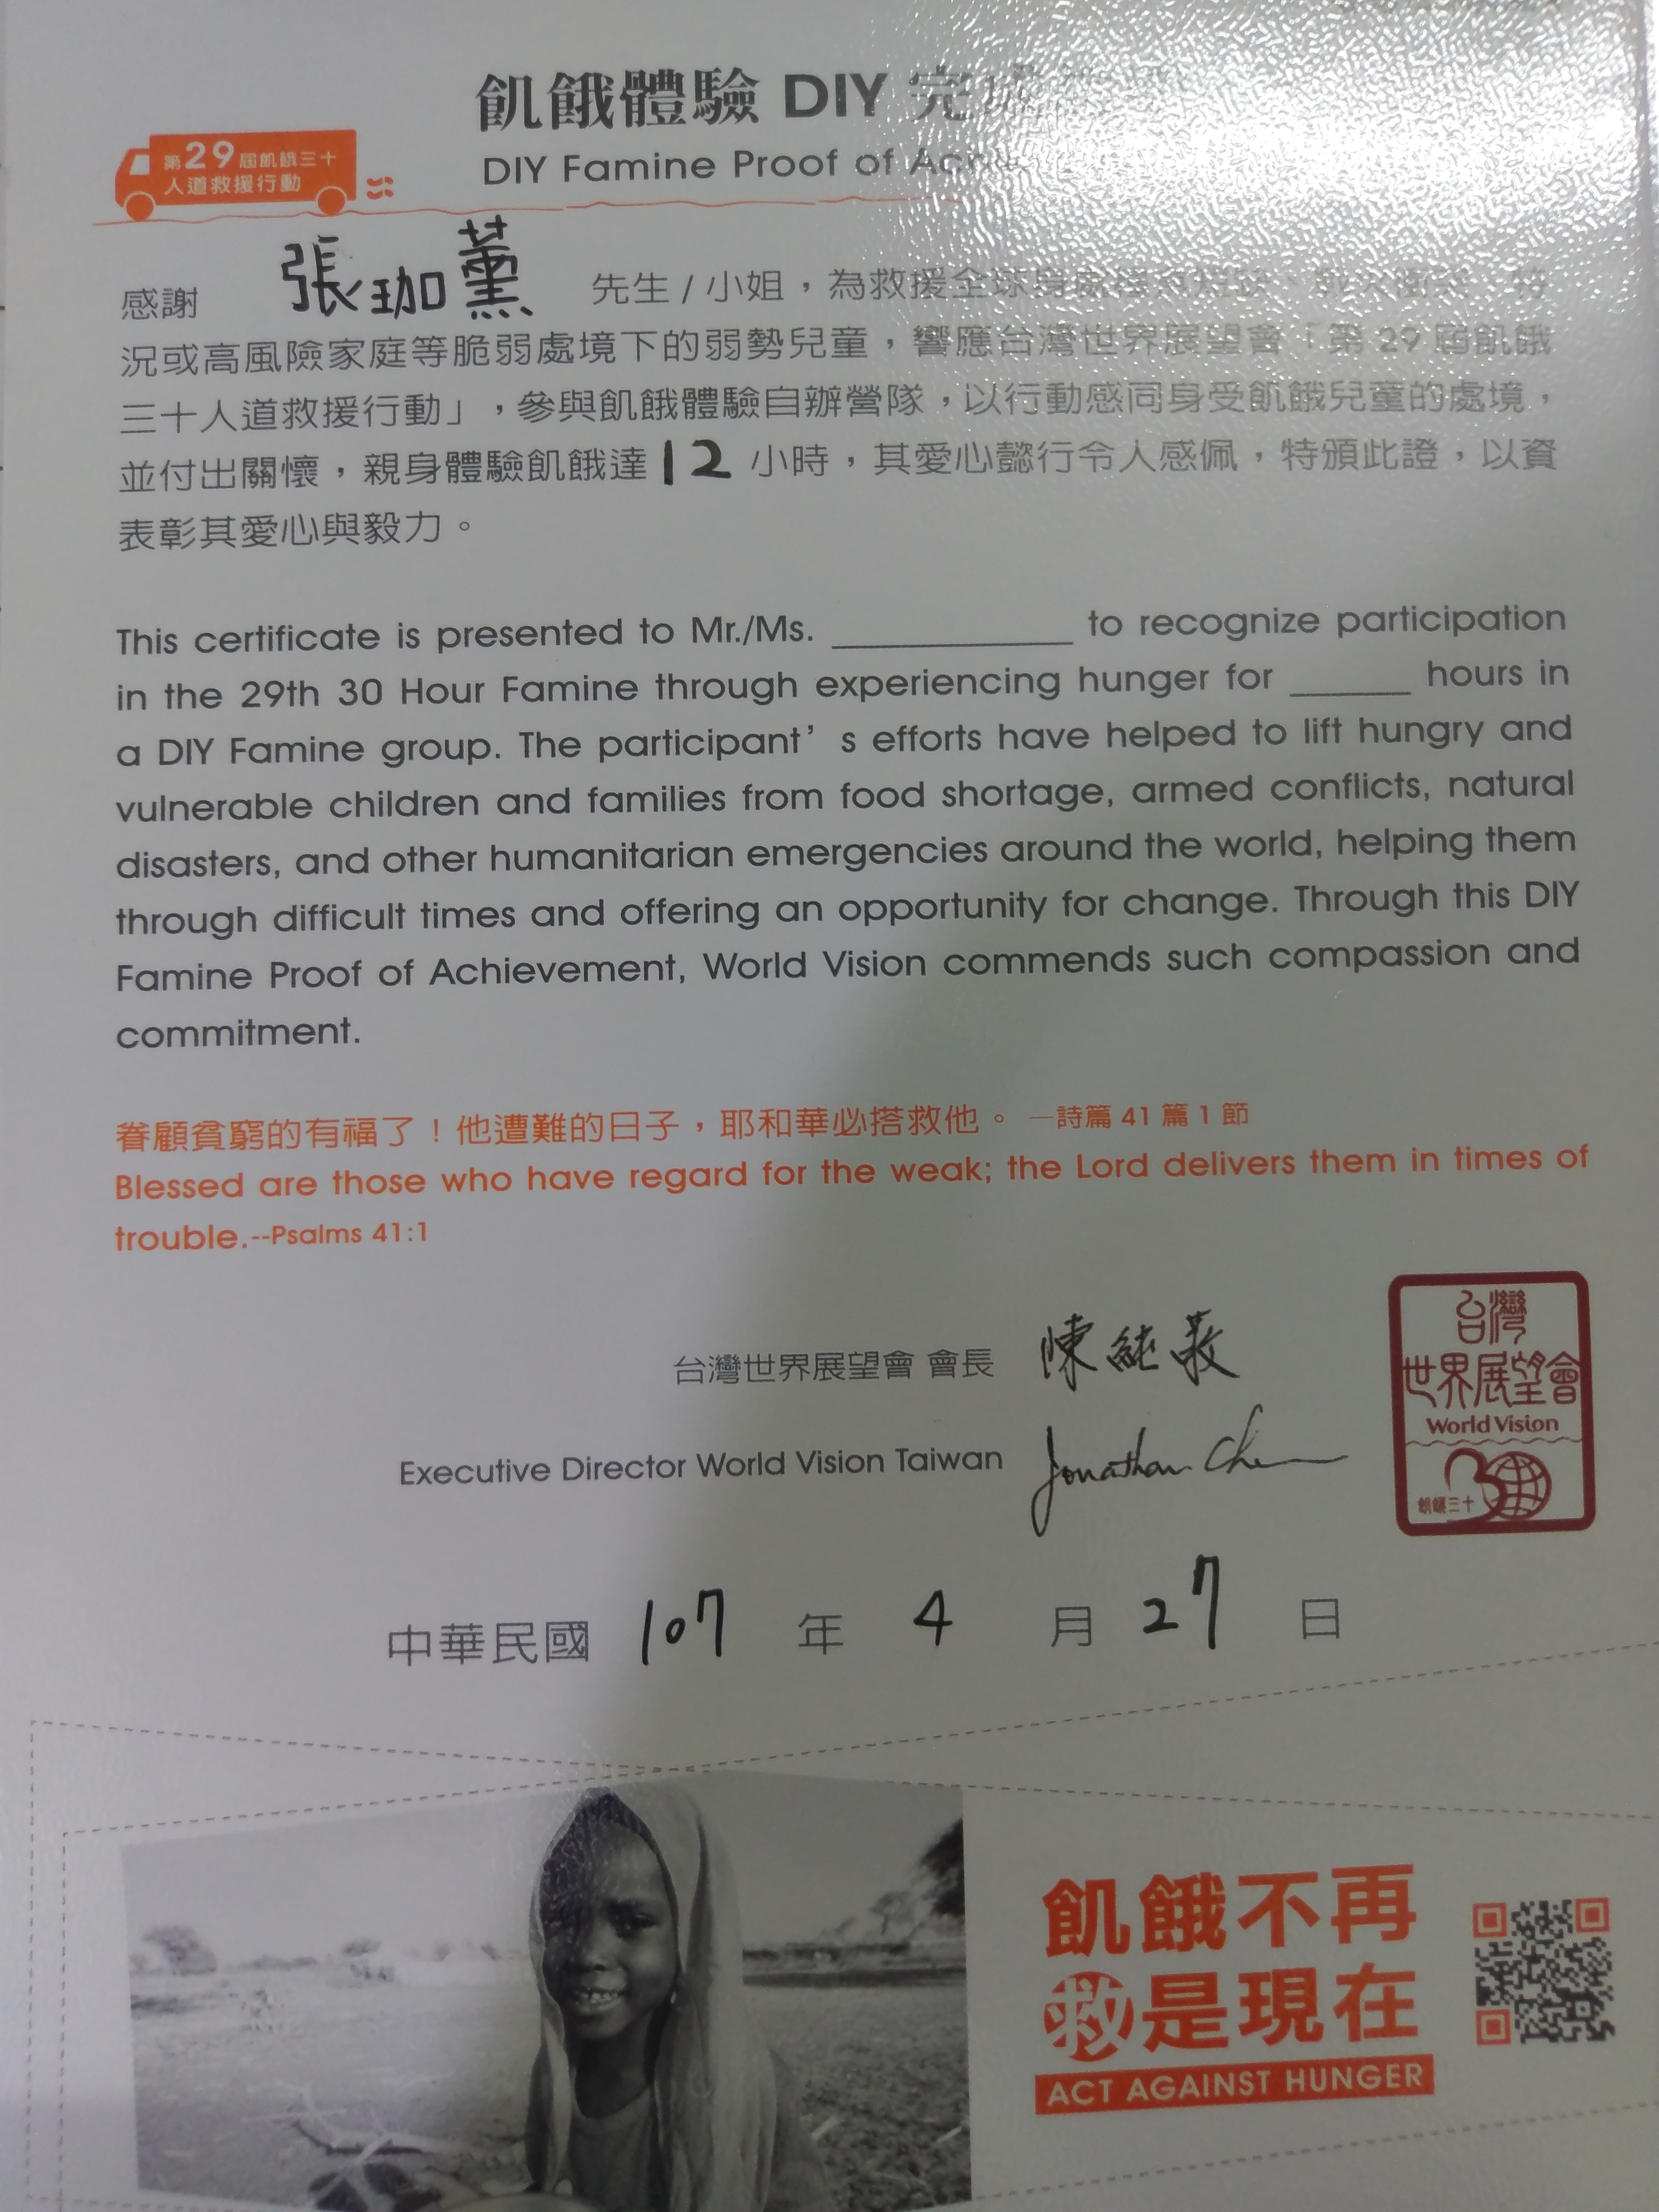 飢餓體驗 DIY 完成
DIY Famine Proof of
第29屆飢餓三十
人道救援行動
感謝 張珈薰 先生 / 小姐，為救援全球身處
況或高風險家庭等脆弱處境下的弱勢兒童，響應台灣世界展望會「第 29 屆飢餓
三十人道救援行動」，參與飢餓體驗自辦營隊，以行動感同身受飢餓兒童的處境，
並付出關懷，親身體驗飢餓達 12 小時，其愛心懿行令人感佩，特頒此證，以資
表彰其愛心與毅力。
This certificate is presented to Mr./Ms. ____________ to recognize participation
in the 29th 30 Hour Famine through experiencing hunger for ______ hours in
a DIY Famine group. The participant’ s efforts have helped to lift hungry and
vulnerable children and families from food shortage, armed conflicts, natural
disasters, and other humanitarian emergencies around the world, helping them
through difficult times and offering an opportunity for change. Through this DIY
Famine Proof of Achievement, World Vision commends such compassion and
commitment.
眷顧貧窮的有福了！他遭難的日子，耶和華必搭救他。 —詩篇 41 篇 1 節
Blessed are those who have regard for the weak; the Lord delivers them in times of
trouble.--Psalms 41:1
台灣世界展望會 會長 陳純敬
Executive Director World Vision Taiwan Jonathan Chen
台灣
世界展望會
World Vision
30
飢餓三十
中華民國 107 年 4 月 27 日
飢餓不再
救是現在
ACT AGAINST HUNGER